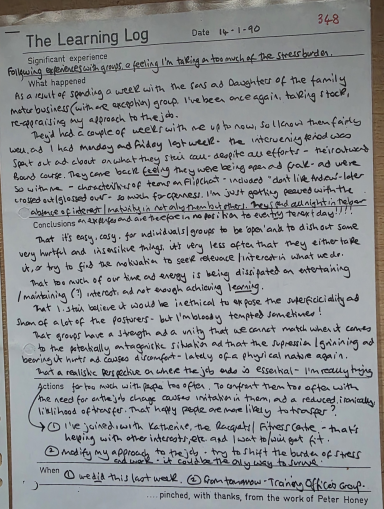 348
The Learning Log Date 14-1-90
Significant experience
Following experiences with groups, a feeling I'm taking on too much of the stress burden.
What happened
As a result of spending a week with the sons and Daughters of the family
motor business (with one exception) group. I've been once again, taking stock,
re-appraising my approach to the job.
They'd had a couple of weeks with me up to now, so I know them fairly
well, and I had Monday and Friday last week - the intervening period was
spent out and about on what they still call - despite all efforts - their outward
Bound course. They came back feeling they were being open and frank - and were
so with me - characteristics of teams on Flipchart - included "don't like Andrew" - later
crossed out/glossed over - so much for openness. I'm just getting peeved with the
absence of interest/maturity in not only them but others. They and all night in the bar
Conclusions and are therefore in no position to every tenet day!!!!
That it's easy, cosy, for individuals/groups to be 'open' and to dish out some
very hurtful and insensitive things, it's very less often that they either take
it, or try to find the motivation to seek relevance/interest in what we do.
That too much of our time and energy is being dissipated on entertaining
/maintaining (?) interest, and not enough achieving learning.
That I still believe it would be unethical to expose the superficiality and
sham of a lot of the posturers - but I'm bloody tempted sometimes!
That groups have a strength and a unity that we cannot match when it comes
to the potentially antagonistic situation and that the suppression/grinning and
bearing it hurts and causes discomfort - lately of a physical nature again.
That a realistic perspective on where the job ends is essential - I'm really trying
Actions far too much with people too often. To confront them too often with
the need for on the job change causes irritation in them, and a reduced, ironically
likelihood of transfer. That happy people are more likely to transfer?
① I've joined, with Katherine, the Racquets/Fitness Centre - that's
helping with other interests, etc and I want to/will get fit.
② modify my approach to the job - try to shift the burden of stress
and work - it could be the only way to survive.
When ① we did this last week. ② From tomorrow - Training Officers Group.
.... pinched, with thanks, from the work of Peter Honey